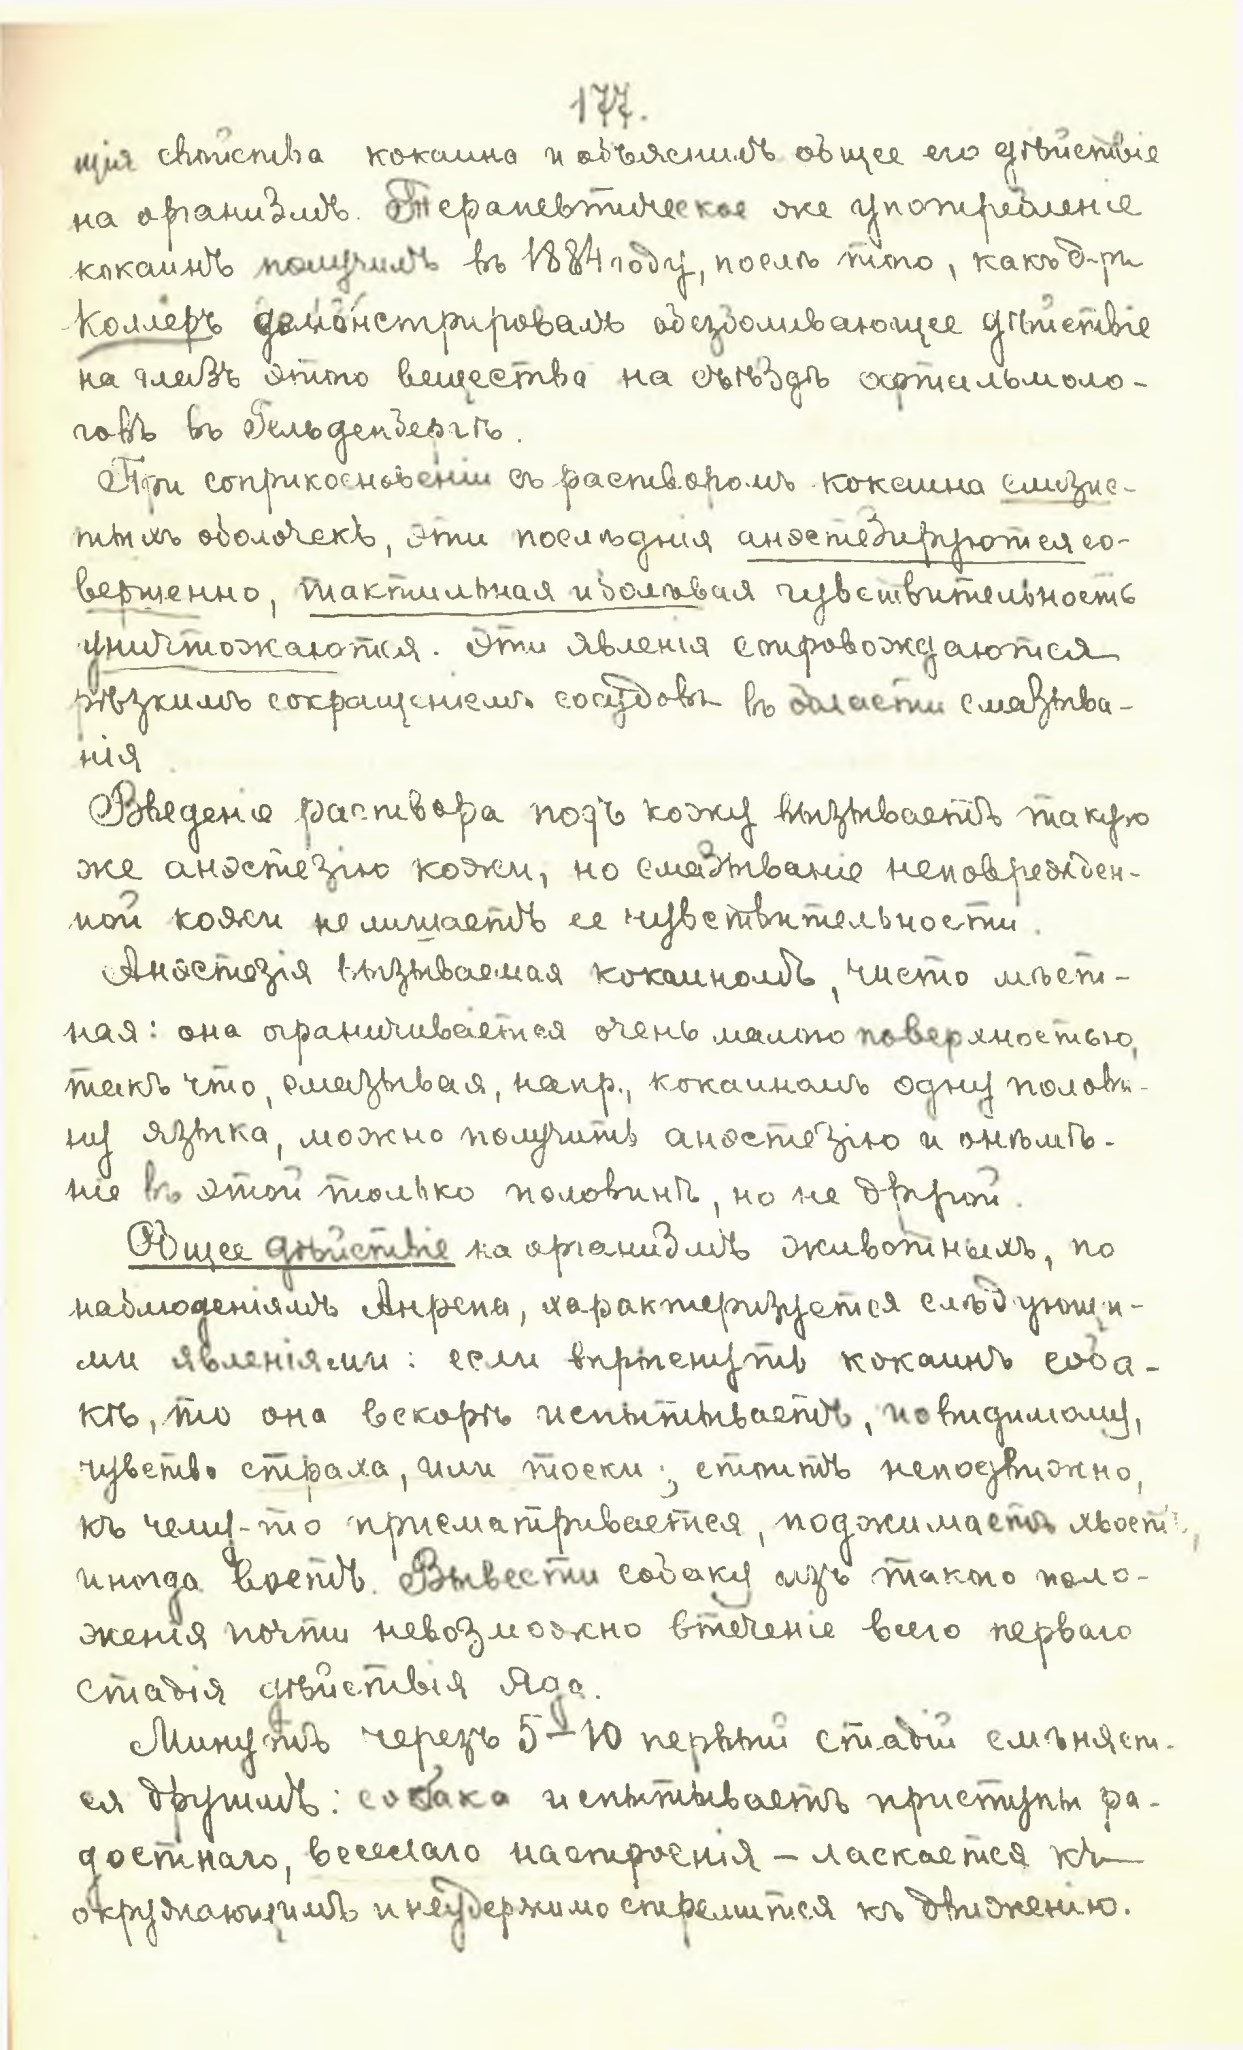 177.
щія свойства кокаина и объяснилъ общее его дѣйствіе
на организмъ. Терапевтическое же употребленіе
кокаинъ получилъ въ 1884 году, послѣ того, какъ д-ръ
Коллеръ демонстрировалъ обезболивающее дѣйствіе
на глазъ этого вещества на съѣздѣ офтальмоло-
говъ въ Гельденбергѣ.
При соприкосновеніи съ растворомъ кокаина слизис-
тыхъ оболочекъ, эти послѣднія анэстезируются со-
вершенно, тактильная и болевая чувствительность
уничтожаются. Эти явленія сопровождаются
рѣзкимъ сокращеніемъ сосудовъ въ области смазыва-
нія
Введеніе раствора подъ кожу вызываетъ такую
же анэстезію кожи, но смазываніе неповрежден-
ной кожи не лишаетъ ее чувствительности.
Анэстезія вызываемая кокаиномъ, чисто мѣст-
ная: она ограничивается очень малою поверхностью,
такъ что, смазывая, напр., кокаиномъ одну полови-
ну языка, можно получить анэстезію и онѣмѣ-
ніе въ этой только половинѣ, но не другой.
Общее дѣйствіе на организмъ животныхъ, по
наблюденіямъ Анрепа, характеризуется слѣдующи-
ми явленіями: если впрыснуть кокаинъ соба-
кѣ, то она вскорѣ испытываетъ, повидимому,
чувство страха, или тоски; стоитъ неподвижно,
къ чему-то присматривается, поджимаетъ хвостъ,
иногда воетъ. Вывести собаку изъ такого поло-
женія почти невозможно втеченіе всего перваго
стадія дѣйствія яда.
Минутъ черезъ 5–10 первый стадій смѣняет-
ся другимъ: собака испытываетъ приступы ра-
достнаго, веселаго настроенія – ласкается къ
окружающимъ и неудержимо стремится къ движенію.